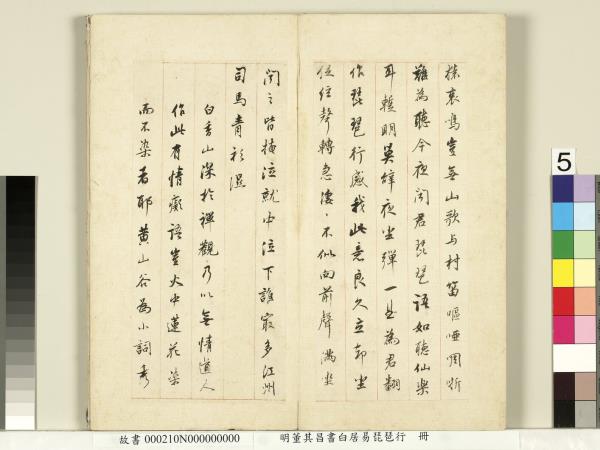 猿哀鳴豈無山歌与村笛嘔啞啁哳
難為聽今夜聞君琵琶語如聽仙樂
耳輒明莫辭夜坐彈一曲為君翻
作琵琶行感我此言良久立却坐
絃轉急淒〻不似向前聲滿坐
聞之皆掩泣就中泣下誰最多江州
司馬青衫濕
白香山深於禪觀乃以無情道人
作此有情癡語豈火中蓮花染
而不染者耶黃山谷為小詞秀
5
故書 000210N000000000
明董其昌書白居易琵琶行 冊